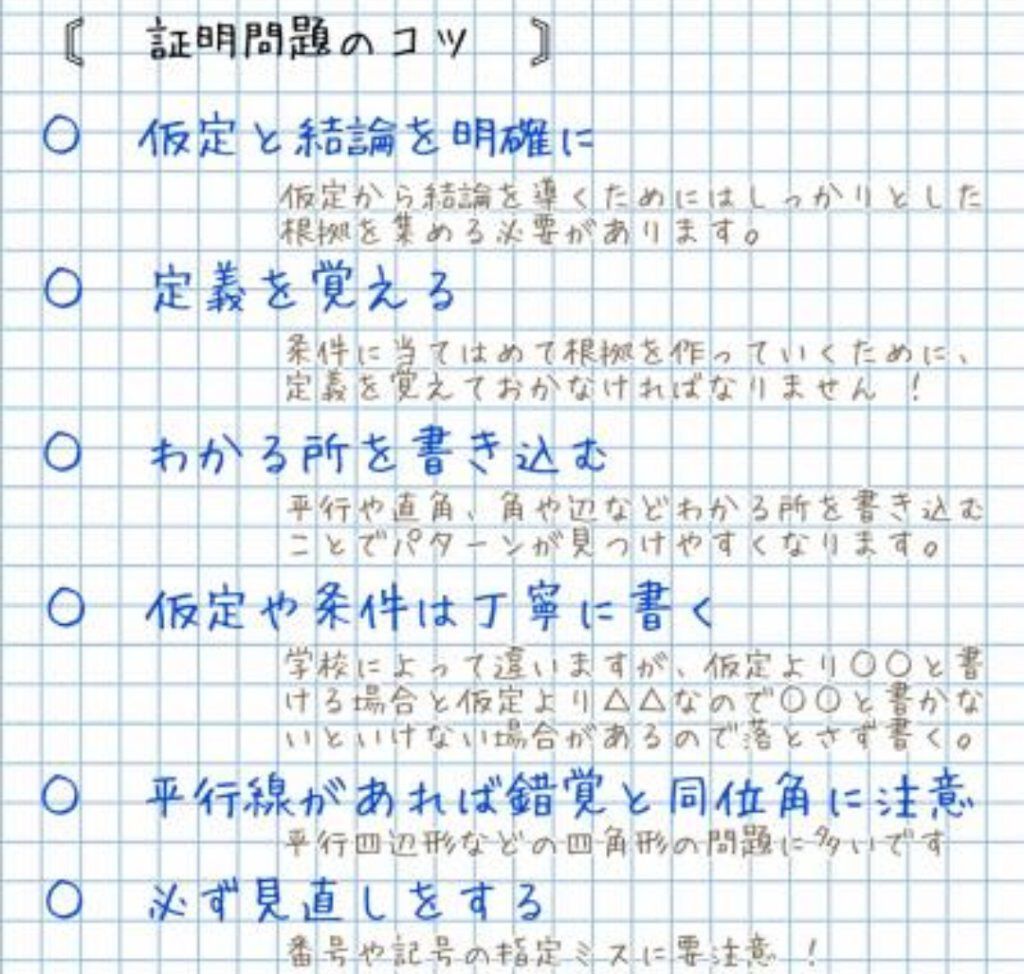 〘 証明問題のコツ 〙
○ 仮定と結論を明確に
仮定から結論を導くためにはしっかりとした
根拠を集める必要があります。
○ 定義を覚える
条件に当てはめて根拠を作っていくために、
定義を覚えておかなければなりません！
○ わかる所を書き込む
平行や直角、角や辺などわかる所を書き込む
ことでパターンが見つけやすくなります。
○ 仮定や条件は丁寧に書く
学校によって違いますが、仮定より○○と書
ける場合と仮定より△△なので○○と書かな
いといけない場合があるので落とさず書く。
○ 平行線があれば錯覚と同位角に注意
平行四辺形などの四角形の問題に多いです
○ 必ず見直しをする
番号や記号の指定ミスに要注意！